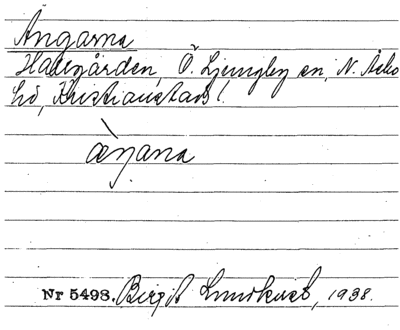 Ängarna
Hallgården, Ö. Ljungby sn, N. Åsbo
hd, Kristianstads l.
æŋana
Nr 5498. Birgit Lundkvist, 1938.